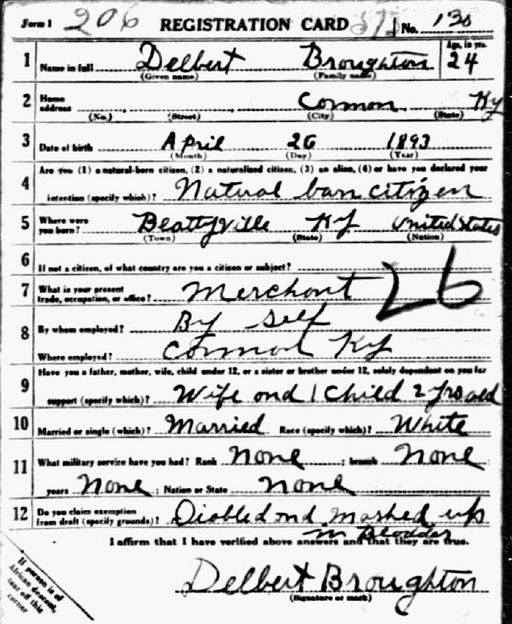 Form 1 206 REGISTRATION CARD 371 No. 130
1 Name in full Delbert Broughton Age, in yrs. 24
(Given name) (Family name)
2 Home address Connon Ky
(No.) (Street) (City) (State)
3 Date of birth April 26 1893
(Month) (Day) (Year)
Are you (1) a natural-born citizen, (2) a naturalized citizen, (3) an alien, (4) or have you declared your
4 intention (specify which)? Natural born citizen
5 Where were you born? Beattyville Ky United States
(Town) (State) (Nation)
6 If not a citizen, of what country are you a citizen or subject?
7 What is your present trade, occupation, or office? Merchant 26
8 By whom employed? By Self
Where employed? Connon Ky
Have you a father, mother, wife, child under 12, or a sister or brother under 12, solely dependent on you for
9 support (specify which)? Wife and 1 Child 2 yrs old
10 Married or single (which)? Married Race (specify which)? White
11 What military service have you had? Rank None ; branch None
years None ; Nation or State None
12 Do you claim exemption from draft (specify grounds)? Diabled and mashed up
in Bladder
I affirm that I have verified above answers and that they are true.
Delbert Broughton
(Signature or mark)
If person is of
African descent,
tear off this
corner